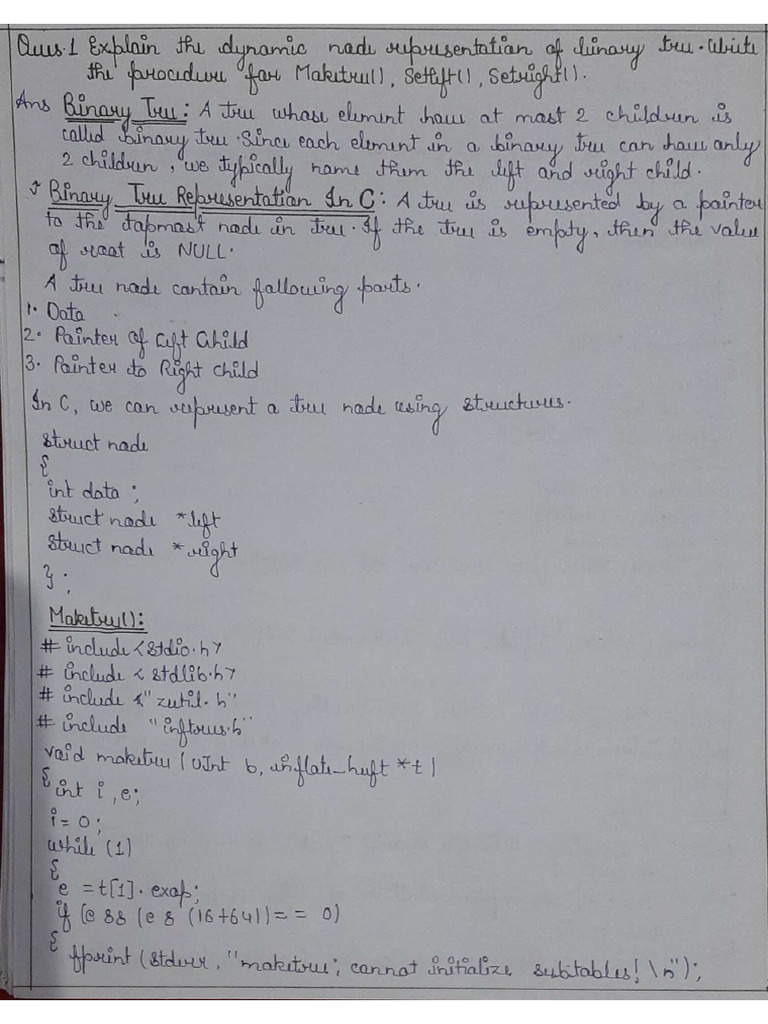 Ques.1 Explain the dynamic node representation of binary tree. Write
the procedure for Maketree(), Setleft(), Setright().
Ans Binary Tree: A tree whose element have at most 2 children is
called binary tree. Since each element in a binary tree can have only
2 children, we typically name them the left and right child.
Binary Tree Representation In C: A tree is represented by a pointer
to the topmost node in tree. If the tree is empty, then the value
of root is NULL.
A tree node contain following parts.
1. Data
2. Pointer of Left Child
3. Pointer to Right Child
In C, we can represent a tree node using structures.
struct node
{
int data ;
struct node *left
struct node *right
} ;
Maketree():
# include <stdio.h>
# include < stdlib.h>
# include <"zutil.h"
# include "inftrees.h"
void maketree ( uInt b, inflate_huft *t )
{
int i, e;
i = 0;
while (1)
{
e = t[1]. exop;
if (e && (e & (16+64))= = 0)
{
fprint (stderr, "maketree; cannot initialize subitables! \n");